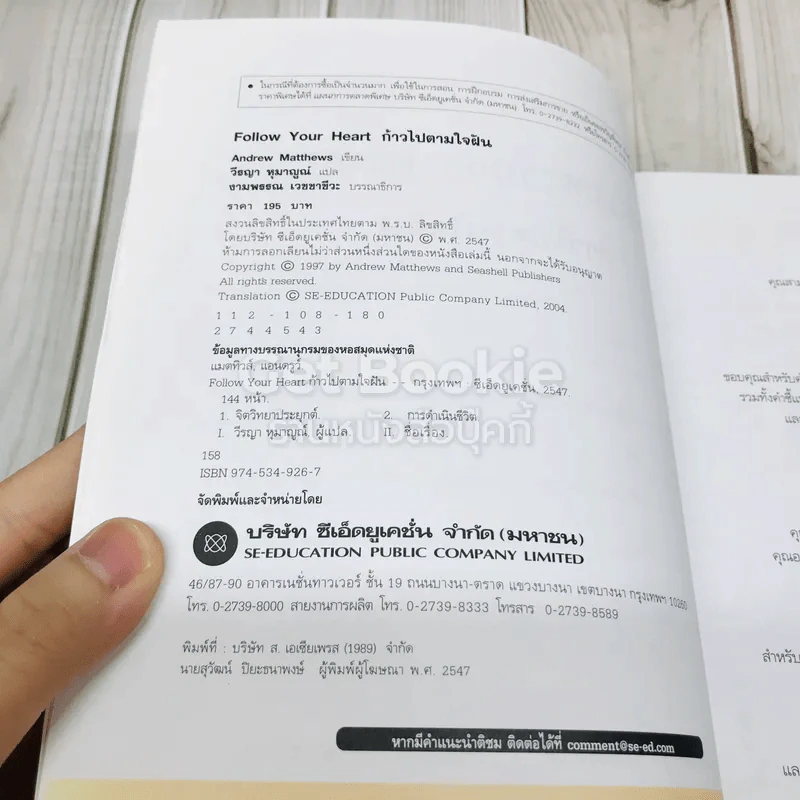 • ในกรณีที่ต้องการซื้อเป็นจำนวนมาก เพื่อใช้ในการสอน การฝึกอบรม การส่งเสริมการขาย หรือเป็นของขวัญ
ราคาพิเศษได้ที่ แผนกการตลาดพิเศษ บริษัท ซีเอ็ดยูเคชั่น จำกัด (มหาชน) โทร. 0-2739-8222
Follow Your Heart ก้าวไปตามใจฝัน
Andrew Matthews เขียน
วีรญา หุมาญณ์ แปล
งามพรรณ เวชชาชีวะ บรรณาธิการ
ราคา 195 บาท
สงวนลิขสิทธิ์ในประเทศไทยตาม พ.ร.บ. ลิขสิทธิ์
โดยบริษัท ซีเอ็ดยูเคชั่น จำกัด (มหาชน) © พ.ศ. 2547
ห้ามการลอกเลียนไม่ว่าส่วนหนึ่งส่วนใดของหนังสือเล่มนี้ นอกจากจะได้รับอนุญาต
Copyright © 1997 by Andrew Matthews and Seashell Publishers
All rights reserved.
Translation © SE-EDUCATION Public Company Limited, 2004.
1 1 2 - 1 0 8 - 1 8 0
2 7 4 4 5 4 3
ข้อมูลทางบรรณานุกรมของหอสมุดแห่งชาติ
แมตทิวส์, แอนดรูว์.
Follow Your Heart ก้าวไปตามใจฝัน. - - กรุงเทพฯ : ซีเอ็ดยูเคชั่น, 2547.
144 หน้า.
1. จิตวิทยาประยุกต์. 2. การดำเนินชีวิต.
I. วีรญา หุมาญณ์, ผู้แปล. II. ชื่อเรื่อง.
158
ISBN 974-534-926-7
Get Bookie
ร้านหนังสือบุ๊คกี้
จัดพิมพ์และจำหน่ายโดย
บริษัท ซีเอ็ดยูเคชั่น จำกัด (มหาชน)
SE-EDUCATION PUBLIC COMPANY LIMITED
46/87-90 อาคารเนชั่นทาวเวอร์ ชั้น 19 ถนนบางนา-ตราด แขวงบางนา เขตบางนา กรุงเทพฯ 10260
โทร. 0-2739-8000 สายงานการผลิต โทร. 0-2739-8333 โทรสาร 0-2739-8589
พิมพ์ที่ : บริษัท ส. เอเซียเพรส (1989) จำกัด
นายสุวัฒน์ ปิยะธนาพงษ์ ผู้พิมพ์ผู้โฆษณา พ.ศ. 2547
หากมีคำแนะนำติชม ติดต่อได้ที่ comment@se-ed.com
ขอบคุณสำหรับ
รวมทั้งคำชี้แ
และ
สำหรับ
และ